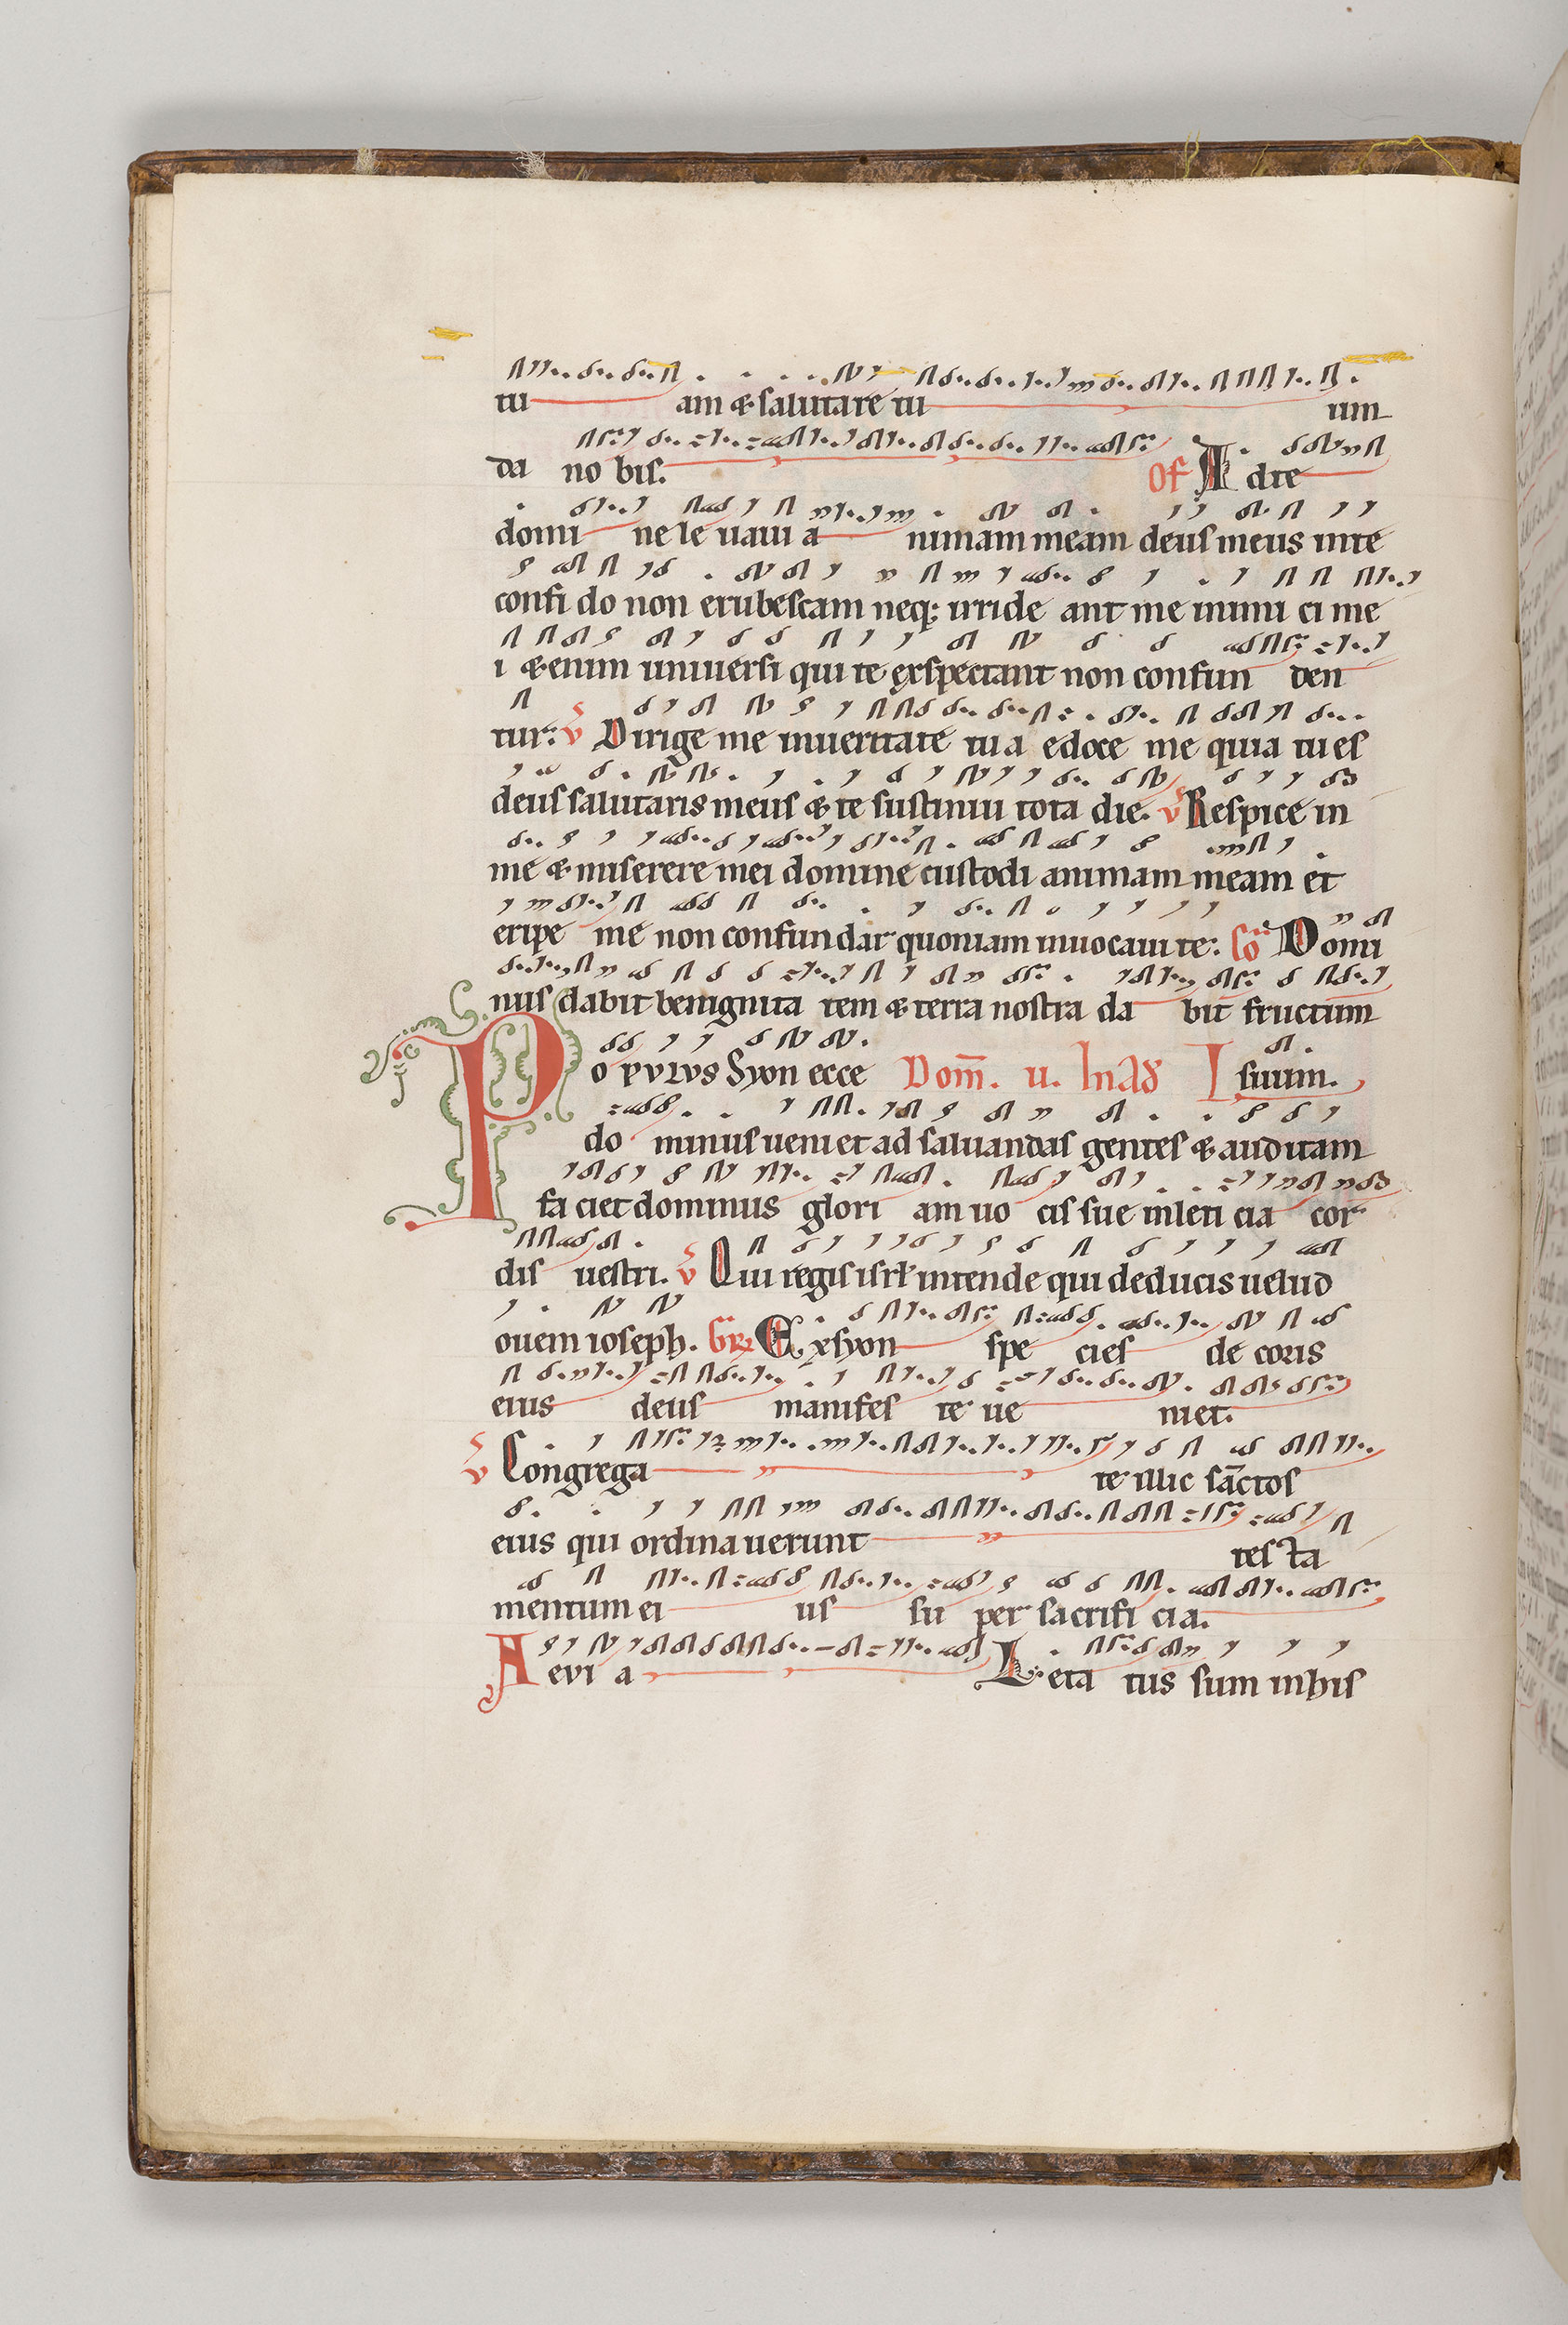 tu am & salutare tu um
da no bis. Of Ad te
domi ne le uaui a nimam meam deus meus in te
confi do non erubescam neq; irride ant me inimi ci me
i & enim uniuersi qui te exspectant non confun den
tur: v Dirige me in ueritate tu a edoce me quia tu es
deus salutaris meus & te sustinui tota die. v Respice in
me & miserere mei domine custodi animam meam et
eripe me non confundar quoniam inuocaui te: Cō Domi
nus dabit benignita tem & terra nostra da bit fructum
Popvlvs Syon ecce Dom̄. ii. In Ad suum.
do minus ueniet ad saluandas gentes & auditam
fa ciet dominus glori am uo cis sue in leti cia cor
dis uestri. v Qui regis isrl intende qui deducis uelud
ouem ioseph. Gr Ex syon spe cies de coris
eius deus manifes te ue niet.
v Congrega te illic sāctos
eius qui ordinauerunt tes ta
mentum ei us su per sacrifi cia.
Aevi a Leta tus sum in his